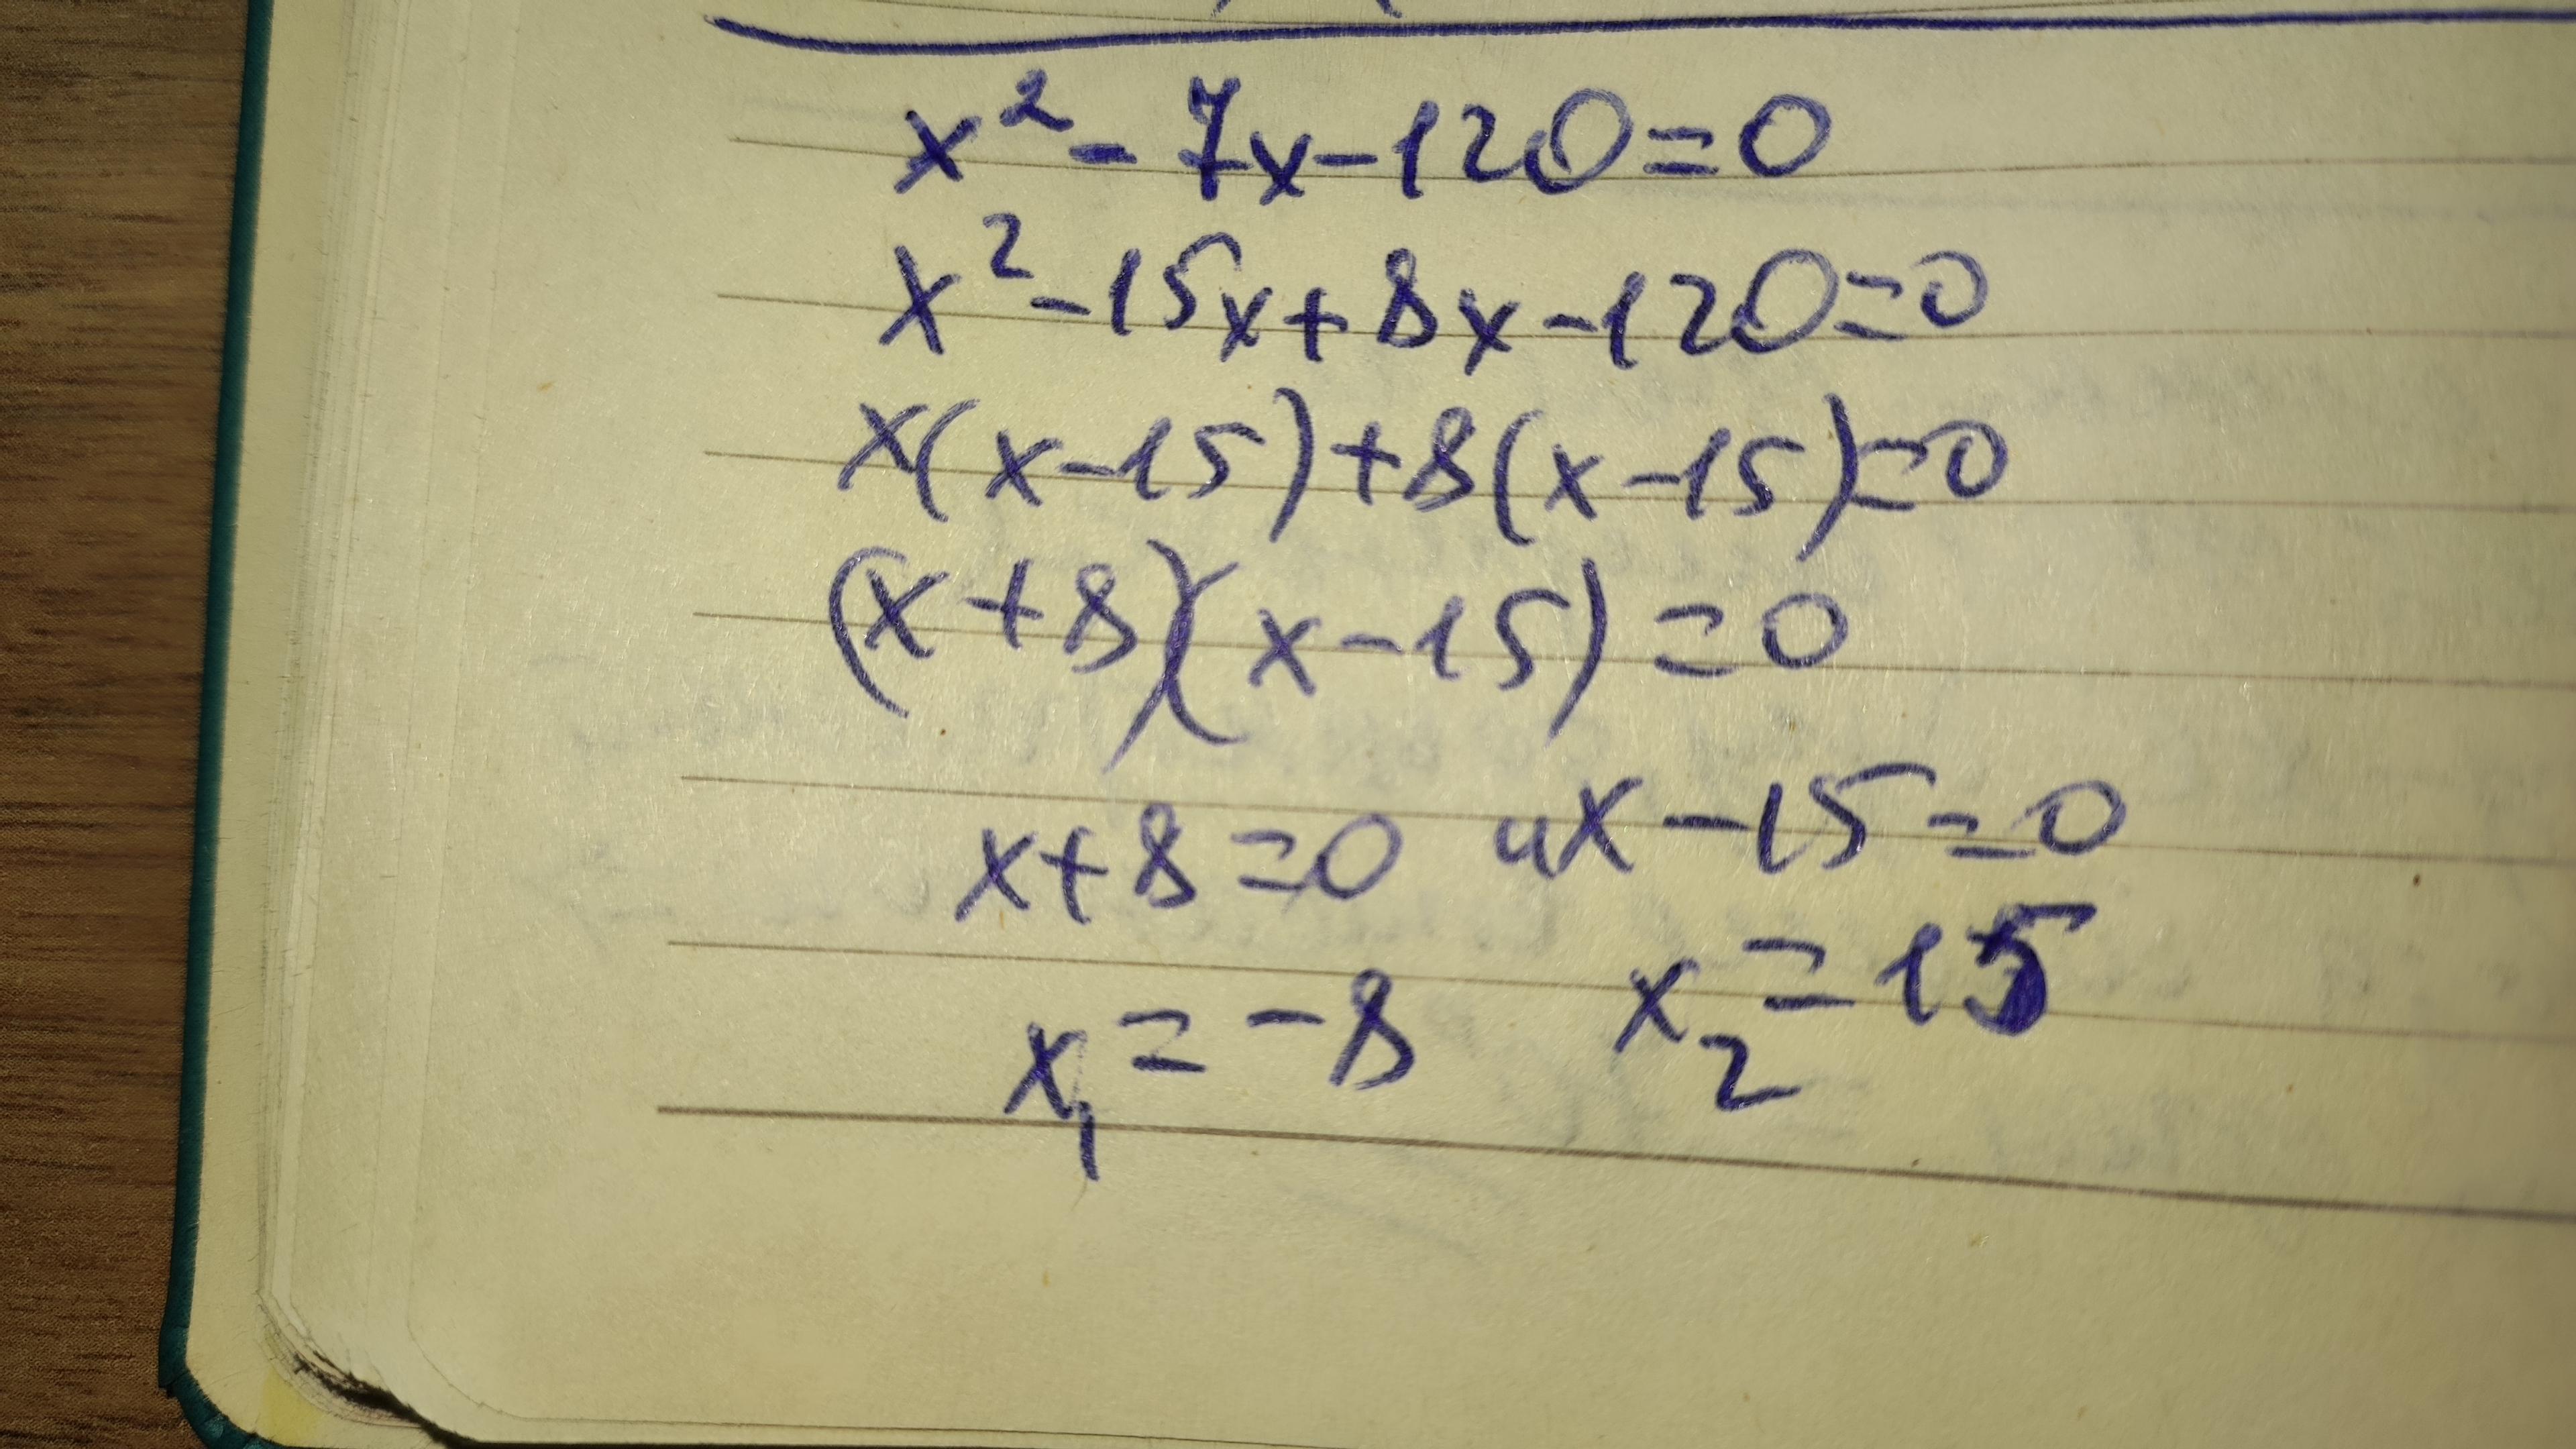 x² - 7x - 120 = 0
x² - 15x + 8x - 120 = 0
x(x - 15) + 8(x - 15) = 0
(x + 8)(x - 15) = 0
x + 8 = 0 и x - 15 = 0
x₁ = -8 x₂ = 15